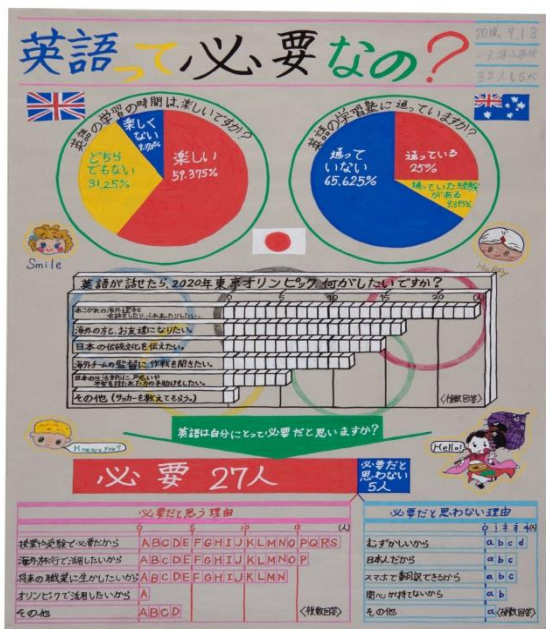 英語って必要なの？
2018.7.13
英語の学習の時間は、楽しいですか？
楽しくない
9.375%
どちらでもない
31.25%
楽しい
59.375%
英語の学習塾に通っていますか？
通っていない
65.625%
通っている
25%
通っていた経験がある
9.375%
Smile
英語が話せたら、2020年東京オリンピック、何がしたいですか？
0 5 10 15 20 (人)
海外の方と、お友達になりたい。
日本の伝統文化を伝えたい。
海外チームの監督に、作戦を聞きたい。
その他(サッカーを教えてもらう。)
〈複数回答〉
英語は自分にとって必要だと思いますか？
Hello!
必要 27人
必要だと思わない
5人
必要だと思う理由
0 5 10 15 (人)
授業や受験で必要だから ABCDEFGHIJKLMNOPQRS
海外旅行で活用したいから ABCDEFGHIJKLMNOP
将来の職業に生かしたいから ABCDEFGHIJKLMN
オリンピックで活用したいから A
その他 ABCD 〈複数回答〉
必要だと思わない理由
0 1 2 3 4(人)
むずかしいから abcd
日本人だから abc
スマホで翻訳できるから abc
関心が持てないから ab
その他 a 〈複数回答〉